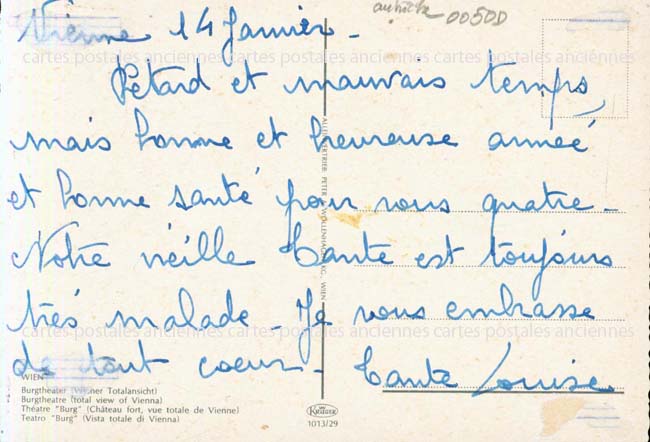 autriche 00500
Vienne 14 Janvier -
cartes postales anciennes cartes postales anciennes cartes postales anciennes
Retard et mauvais temps,
mais bonne et heureuse année
et bonne santé pour vous quatre -
Notre vieille tante est toujours
très malade - Je vous embrasse
cartes postales anciennes cartes postales anciennes cartes postales anciennes
de tout coeur - tante Louise
WIEN
Burgtheater (Wiener Totalansicht)
Burgtheatre (total view of Vienna)
Théatre "Burg" (Château fort, vue totale de Vienne)
Teatro "Burg" (Vista totale di Vienna)
1013/29
ALLEINVERTRIEB PETER WIEN